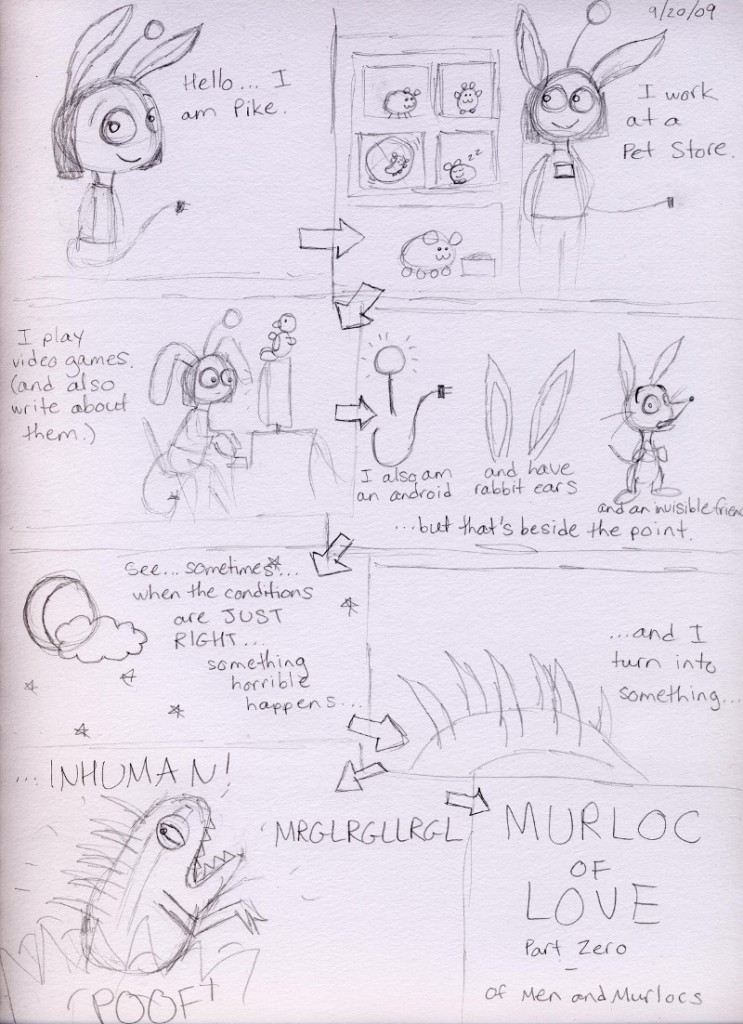 9/20/09
Hello... I
am Pike.
I work
at a
Pet Store.
zz
I play
video games.
(and also
write about
them.)
I also am
an android
and have
rabbit ears
and an invisible friend
...but that's beside the point.
See... sometimes...
when the conditions
are JUST
RIGHT...
something
horrible
happens...
...and I
turn into
something...
...INHUMAN!
MRGLRGLLRGL
POOF
MURLOC
OF
LOVE
Part Zero
-
of Men and Murlocs